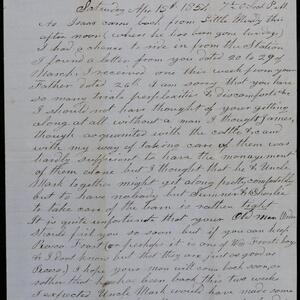 Saturday Apr 15th 1854 7½ o'clock P.M.
As Isaac came back from Little Mendy this
after noon (where he has been gone two days)
I had a chance to ride in from the Station
I found a letter from you dated 20 to 29 of
March. I received one this week from your
Father dated 26th I am sorry that you have
so many trials perplexities & discomforts &c
I should not have thought of your getting
along at all without a man I thought James,
though acquainted with the cattle &c and
with my way of taking care of them was
hardly sufficient to have the management
of them alone but I thought he & Uncle
Mark together might get along pretty comfortably
but to have nobody but Sumner & Charles
to take care of the barn is rather tight
It is quite unfortunate that your Old man
should fail you so soon but if you can keep
Frost (or perhaps it is one of Wm Frosts boys
I dont know but that they are just as good as
I hope your man will come back soon, or
rather that he has been back this two weeks
I expected Uncle Mark would have made some